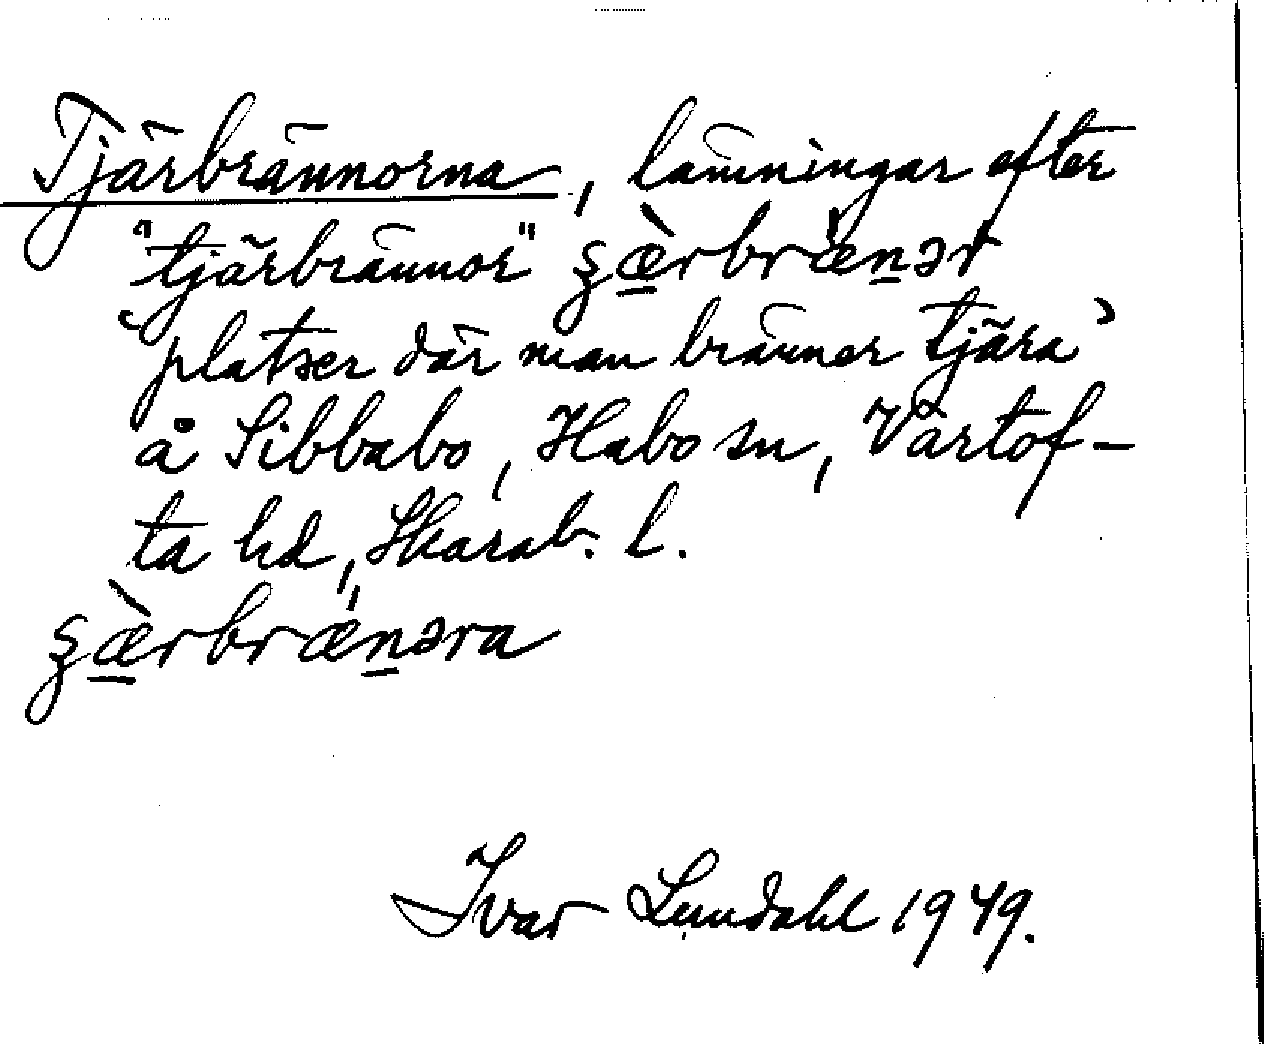 Tjärbrännorna, lämningar efter
"tjärbrännor" ʂæ̠̀rbræ̀n̠ər
‘platser där man bränner tjära’
å Sibbabo, Habo sn, Vartof-
ta hd, Skarab. l.
ʂæ̠̀rbræ̀n̠əra
Ivar Lundahl 1949.